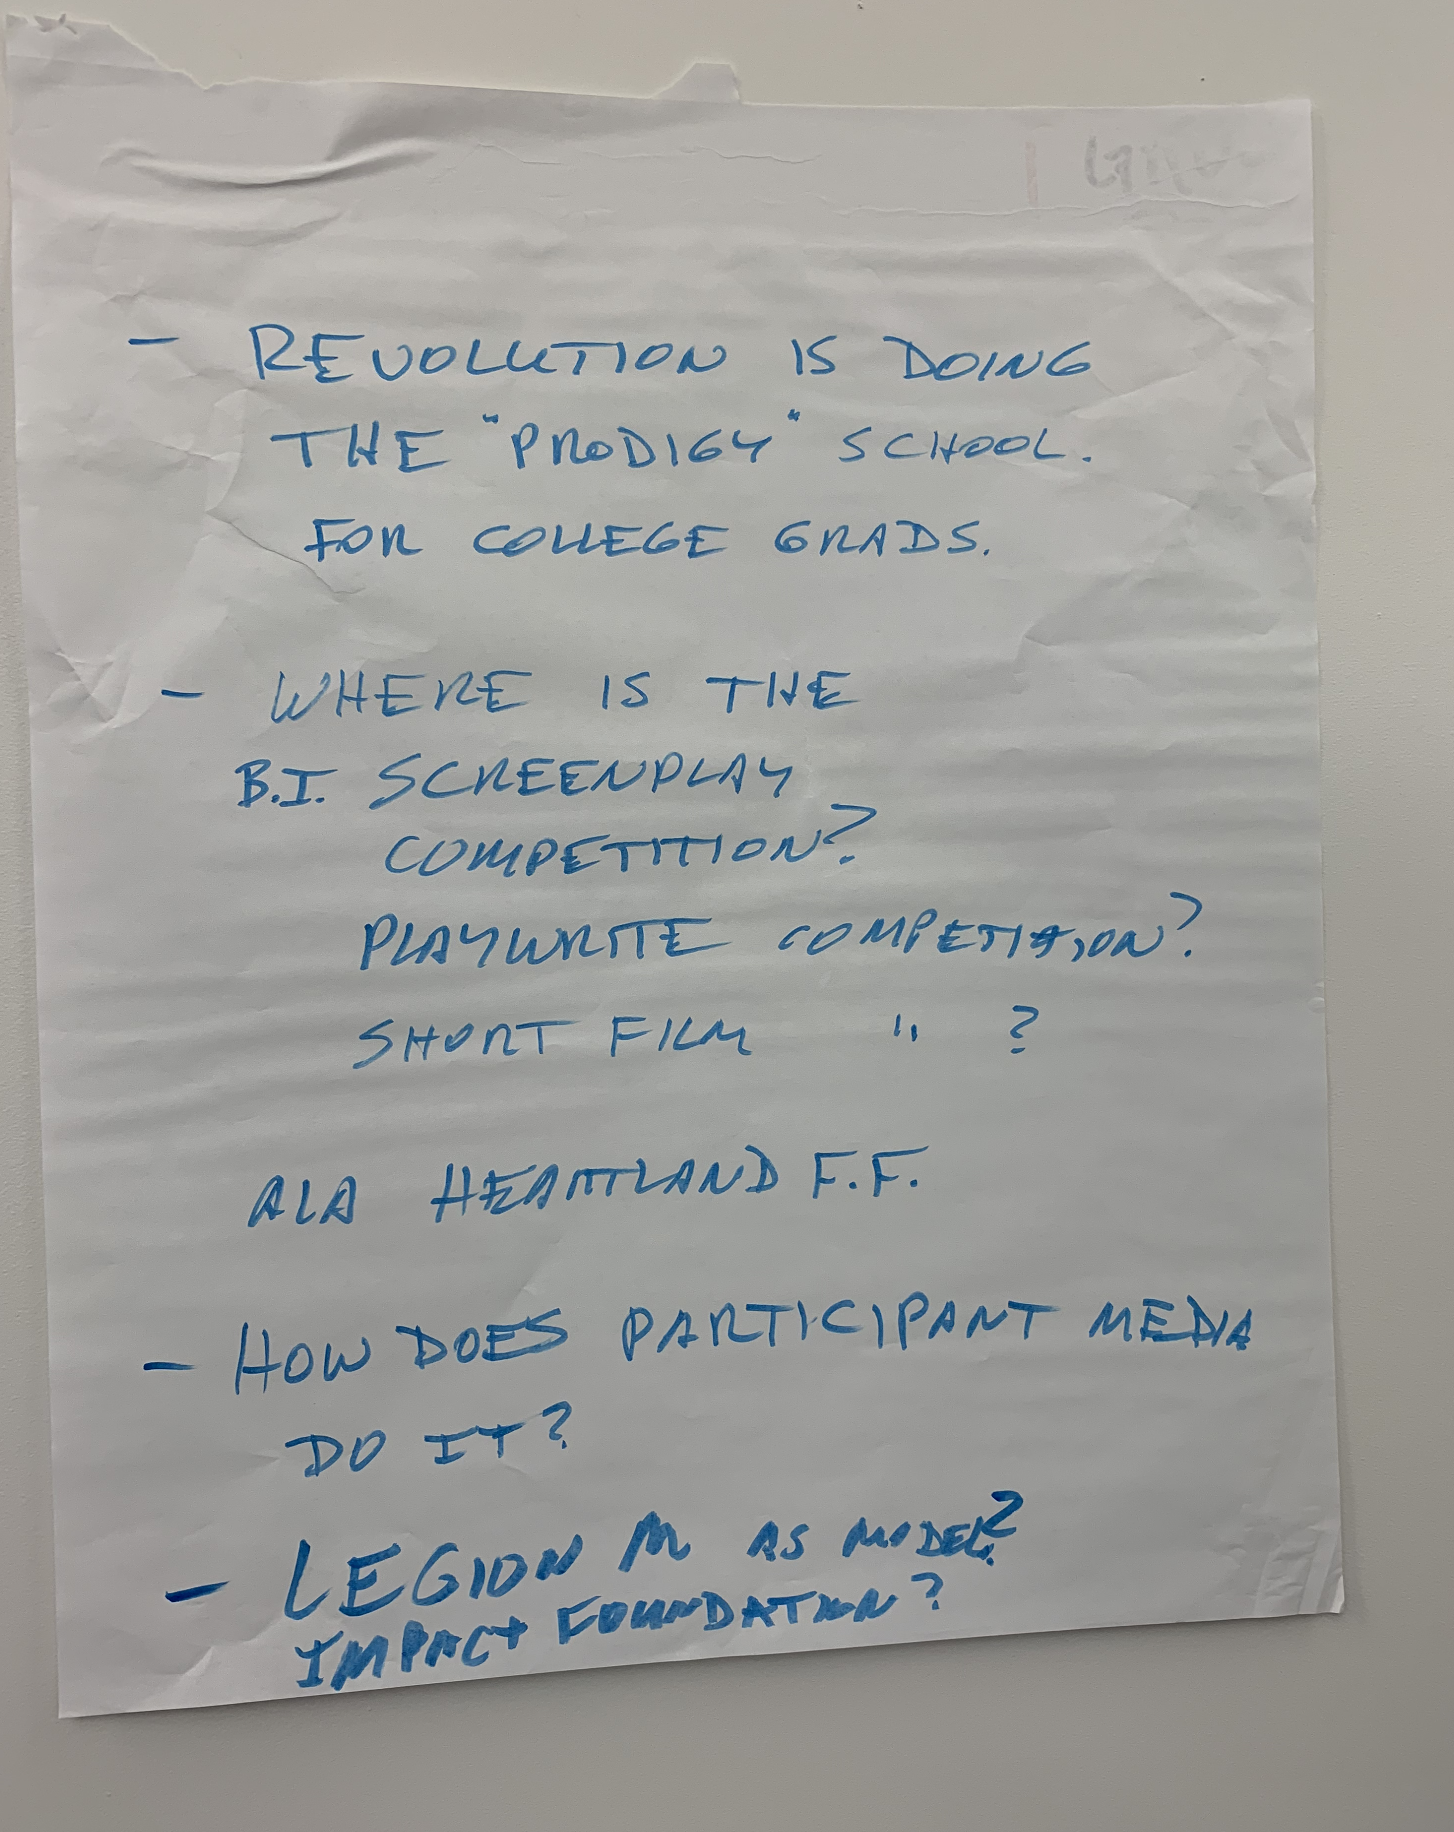 - REVOLUTION IS DOING
THE "PRODIGY" SCHOOL.
FOR COLLEGE GRADS.
- WHERE IS THE
B.I. SCREENPLAY
COMPETITION?
PLAYWRITE COMPETITION?
SHORT FILM " ?
ALA HEARTLAND F.F.
- HOW DOES PARTICIPANT MEDIA
DO IT?
- LEGION M AS MODEL?
IMPACT FOUNDATION?